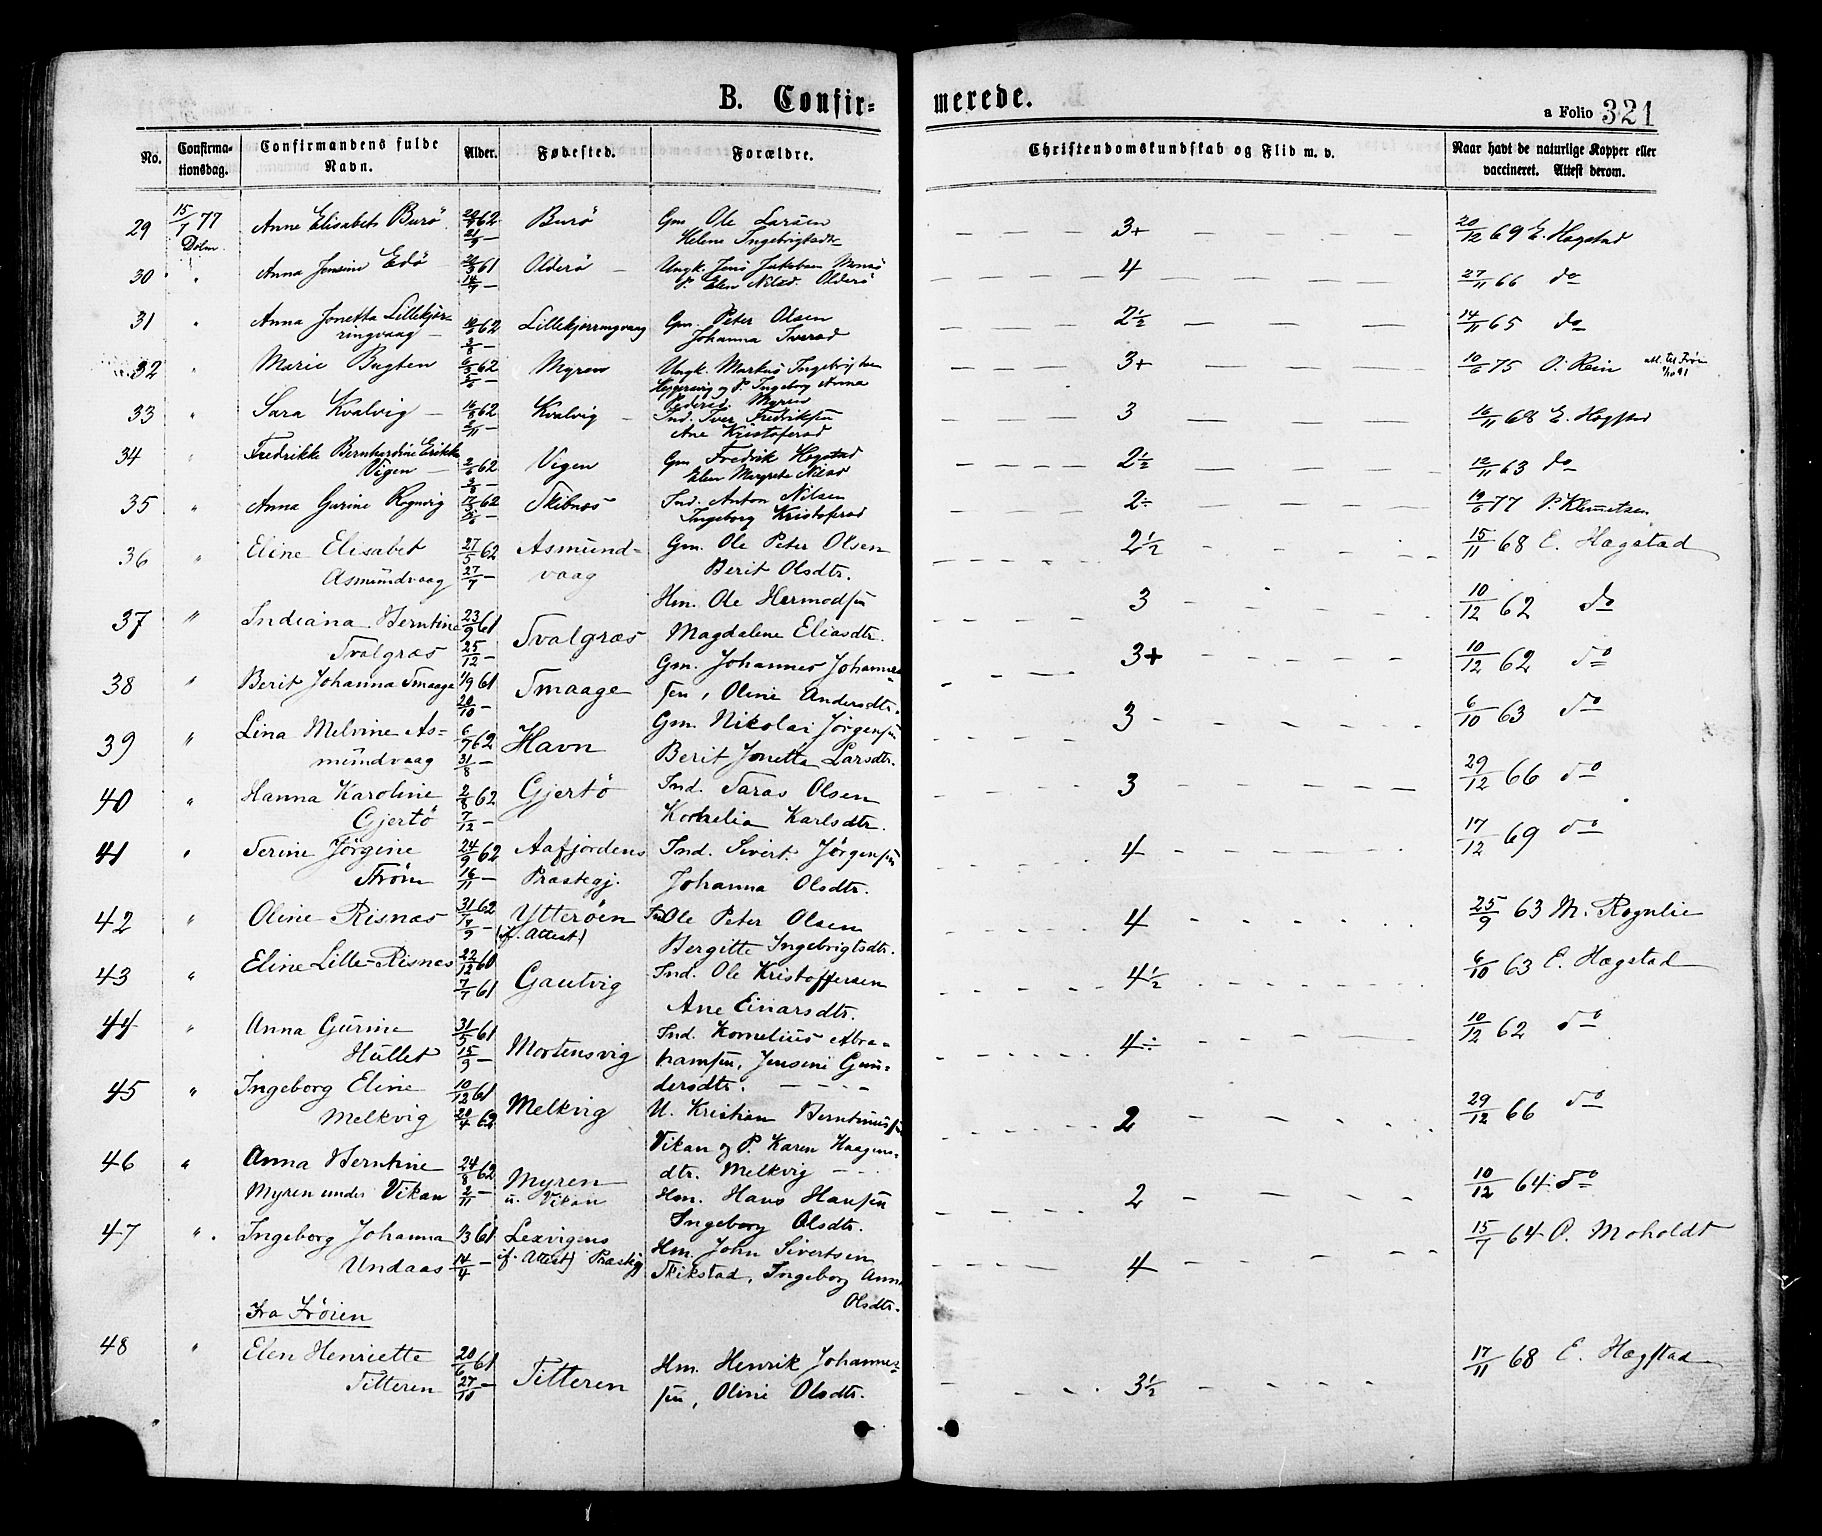 B. Confir-
merede.
a Folio 321
No.
Confirma-
tionsdag.
Confirmandens fulde
Navn.
Alder.
Fødested.
Forældre.
Christendomskundskab og Flid m. v.
Naar havt de naturlige Kopper eller
vaccineret. Attest derom.
29 15/7 77 Anne Elisabets Burö 62 Burö Gm Ole Larsen 3+ 20/12 69 E. Hagstad
Dolm Helene Ingebrigtsdtr
30 " Anna Jensine Edö 61 Olderö Ungk. Jens Jakobsen 4 27/11 66 do
P. Elen Nilsd. Olderö
31 " Anna Jonetta Lillekjer- 62 Lillekjerringvaag Gm. Peter Olsen 2½ 14/11 65 do
ringvaag Johanna Iversd
32 " Marie Bugten 62 Myren Ungk. Markus Ingebrigtsen 3+ 10/6 75 O. Rein
og P. Ingeborg Anna
Pedersd. Myren
33 " Sara Kvalvig 16/8 62 Kvalvig Ind. Iver Fredriksen 3 16/11 68 E. Hagstad
2/11 Ane Kristofersd
34 " Fredrikke Bernhardine Erikke 2/6 62 Vigen Gm. Fredrik Hegstad 2½ 12/11 63 do
Vigen Elen Margrete Nilsd
35 " Anna Gurine Rognvig 62 Skibnes Ind. Anton Nilsen 2÷ 19/6 77 P. Klemetsen
Ingeborg Kristofersd
36 " Eline Elisabet 27/5 62 Asmund- Gm. Ole Peter Olsen 2½ 15/11 68 E. Hagstad
Asmundvaag 27/7 – vaag Berit Olsdtr.
37 " Indiana Berntine 23/9 61 Svalgræs Hm. Ole Hermodsen 3 10/12 62 do
Svalgræs 25/12 – Magdalene Eliasdtr.
38 " Berit Johanna Smaage 1/9 61 Smaage Gm. Johannes Johannes- 3+ 10/12 62 do
20/10 – sen, Oline Andersdtr.
39 " Lina Melvine As- 6/7 62 Havn Gm. Nikolai Jörgensen 3 6/10 63 do
mundvaag 31/8 Berit Jonetta Larsdtr.
40 " Hanna Karoline 2/8 62 Gjertö Ind. Taras Olsen 3 29/12 66 do
Gjertö 7/12 – Kornelia Karlsdtr.
41 " Serine Jörgine 24/9 62 Aafjordens Ind. Sivert Jörgensen 4 17/12 69 do
Ström 16/11 – Præstegj. Johanna Olsdtr.
42 " Oline Risnæs 62 Ytteröen Ind Ole Peter Olsen 4 25/9 63 M. Rognlie
(if. Attest) Bergitte Ingebrigtsdtr.
43 " Eline Lille-Risnæs 22/12 60 Gautvig Ind. Ole Kristoffersen 4½ 6/10 63 E. Hagstad
7/1 61 Ane Einarsdtr.
44 " Anna Gurine 31/5 61 Mortensvig Ind. Kornelius Abra- 4÷ 10/12 62 do
Hullet 15/9 – hamsen, Jensine Gun-
dersdtr.
45 " Ingeborg Eline 10/12 61 Melkvig U. Kristian Berntinussen 2 29/12 66 do
Melkvig 20/4 62 Vikan og P. Karen Haagens-
dtr. Melkvig
46 " Anna Berntine 24/8 62 Myren Hm. Hans Hansen 2 10/12 64 do
Myren under Vikan 2/11 – u. Vikan Ingeborg Olsdtr.
47 " Ingeborg Johanna 61 Lexvigens Hm. John Sivertsen 4 15/7 64 O. Moholdt
Undaas 14/4 – if. Attest) Præstegj Skikstad, Ingeborg Anna
Olsdtr.
Fra Fröien
48 " Elen Henriette 20/6 61 Titteren Hm. Henrik Johannes- 3½ 17/11 68 E. Hagstad
Titteren 27/10 – sen, Oline Olsdtr.